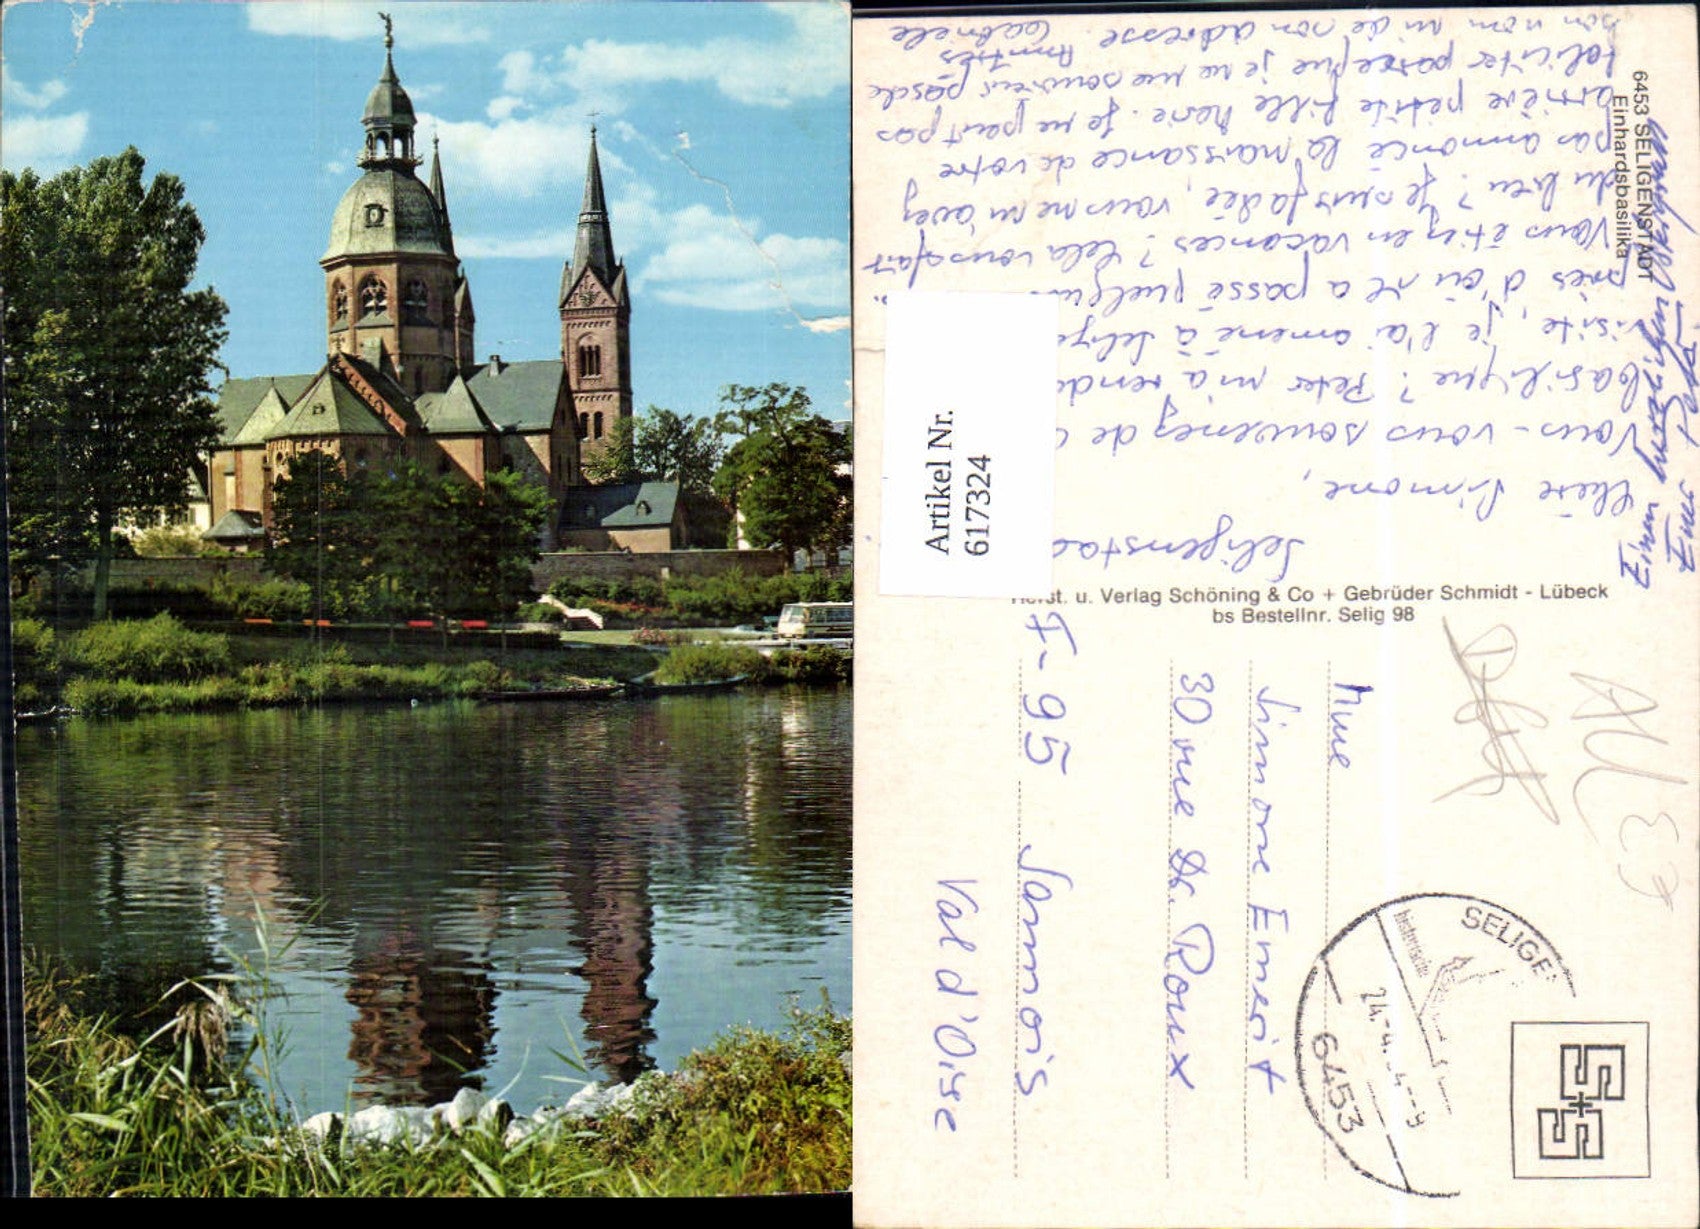 6453 SELIGENSTADT
Einhardsbasilika
Chère Simone,
Vous-vous souvenez de
basilique? Peter m'a
visite, je l'ai amené à
près d'où il a passé quelques
Vous êtiez en vacances? Cela vous fait
du bien? Je suis fachée, vous ne m'avez
pas annoncé la naissance de votre
arrière petite fille Marie. Je ne peut pas
féliciter parceque je ne me souviens pas de
son nom ni de son adresse. Amitiés
Gabriele
Artikel Nr.
617324
Herst. u. Verlag Schöning & Co + Gebrüder Schmidt - Lübeck
bs Bestellnr. Selig 98
Mme
Simone Emerit
30 rue Dr. Roux
F-95 Sannois
Val d'Oise
SELIGE
24.-4.
6453